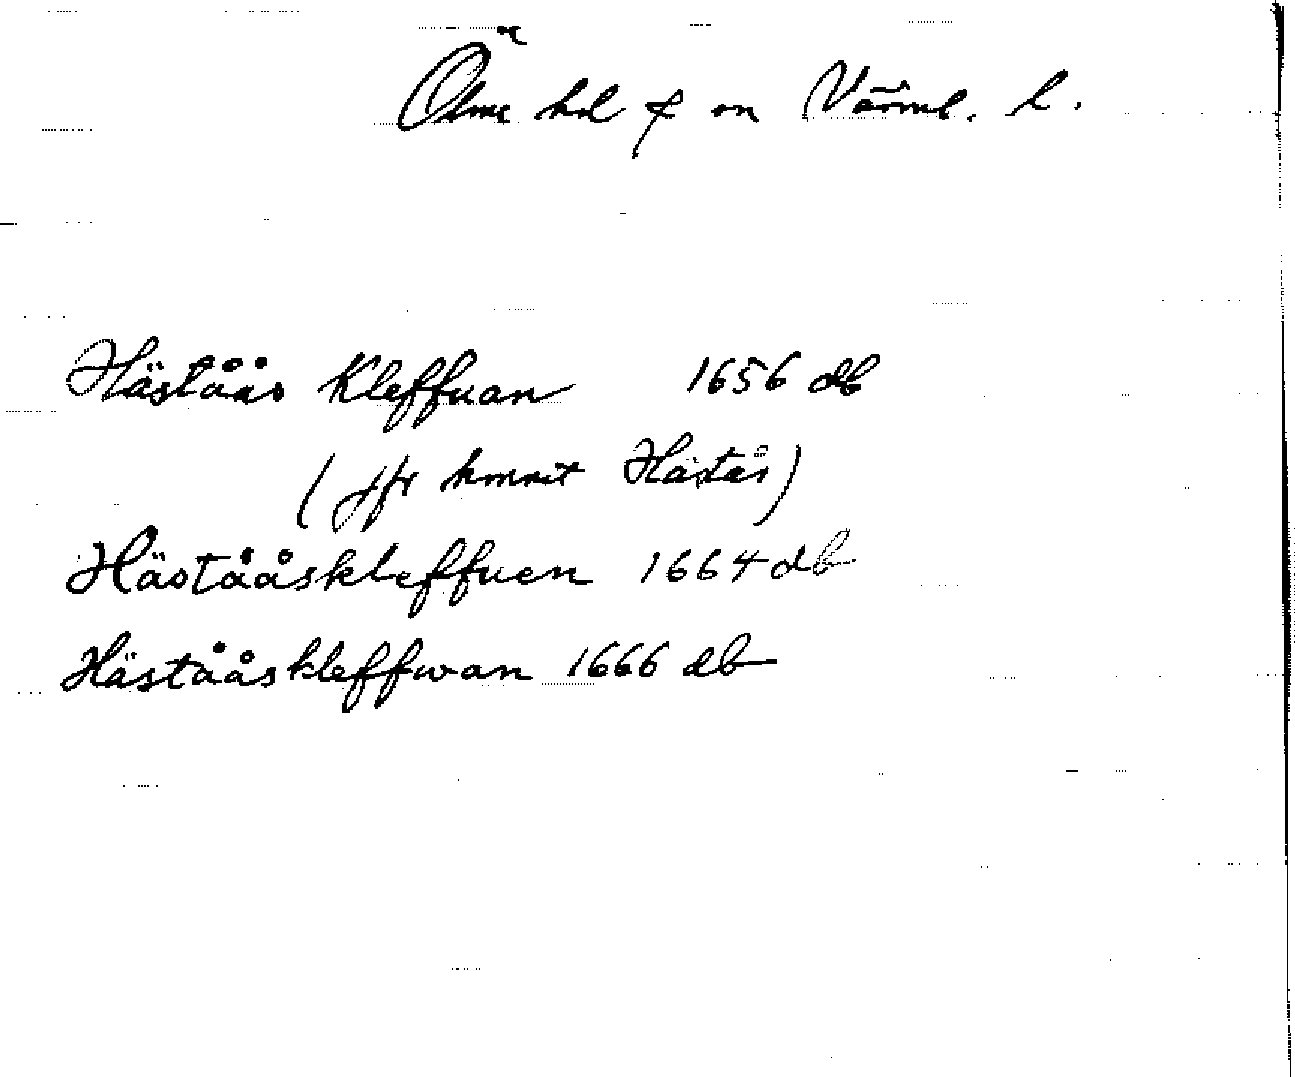 Ölme hd f on Värml. l.
Häståås Kleffuan 1656 db
(jfr hmnet Håstås)
Hästååskleffuen 1664 db
Hästååskleffwan 1666 db